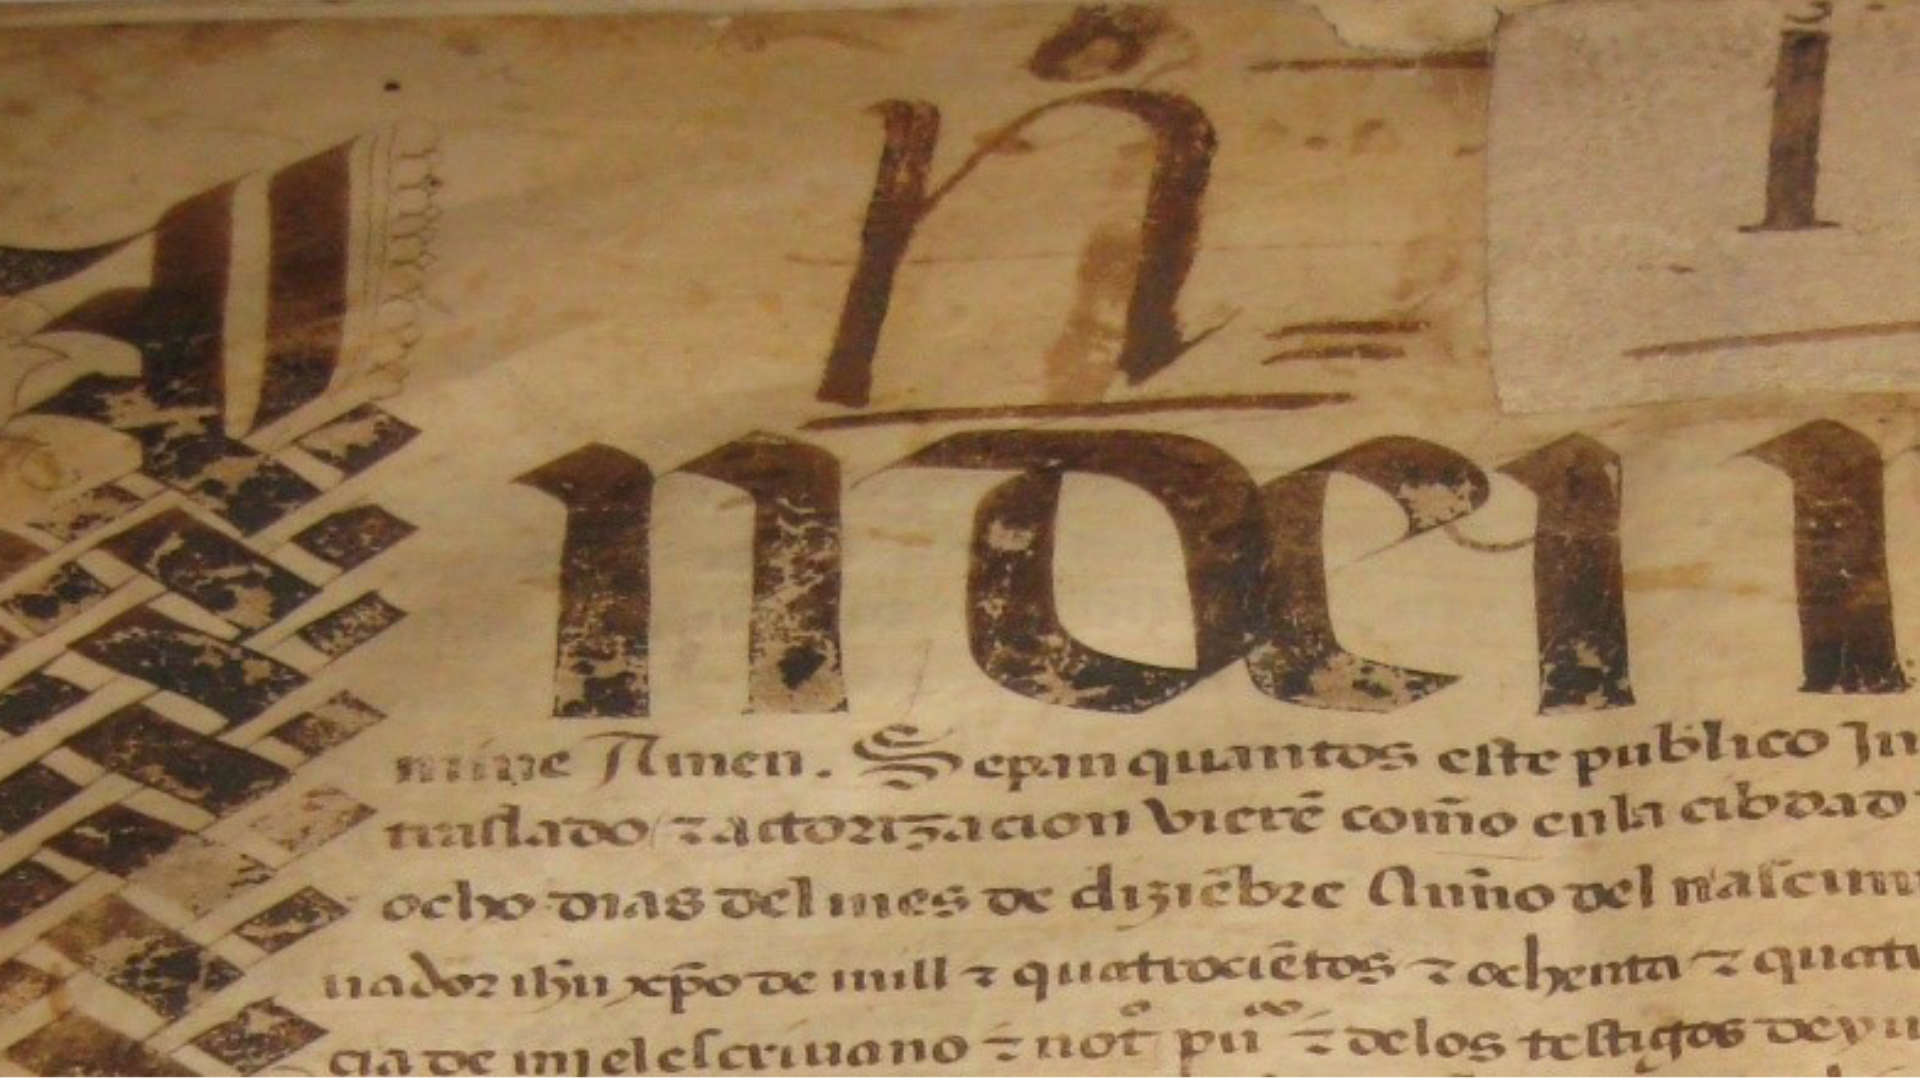 n̊ i
In dei n
mine Amen. Sepan quantos este publico In
traslado ⁊ actorizacion vierē com̄o en la cibdad
ocho dias del mes de diziēbre Ann̄o del nascim
uador ihū xp̄o de mill ⁊ quatrociētos ⁊ ochenta ⁊ quat
cia de mj el escriuano ⁊ not̊ pu ⁊ de los testigos de yu